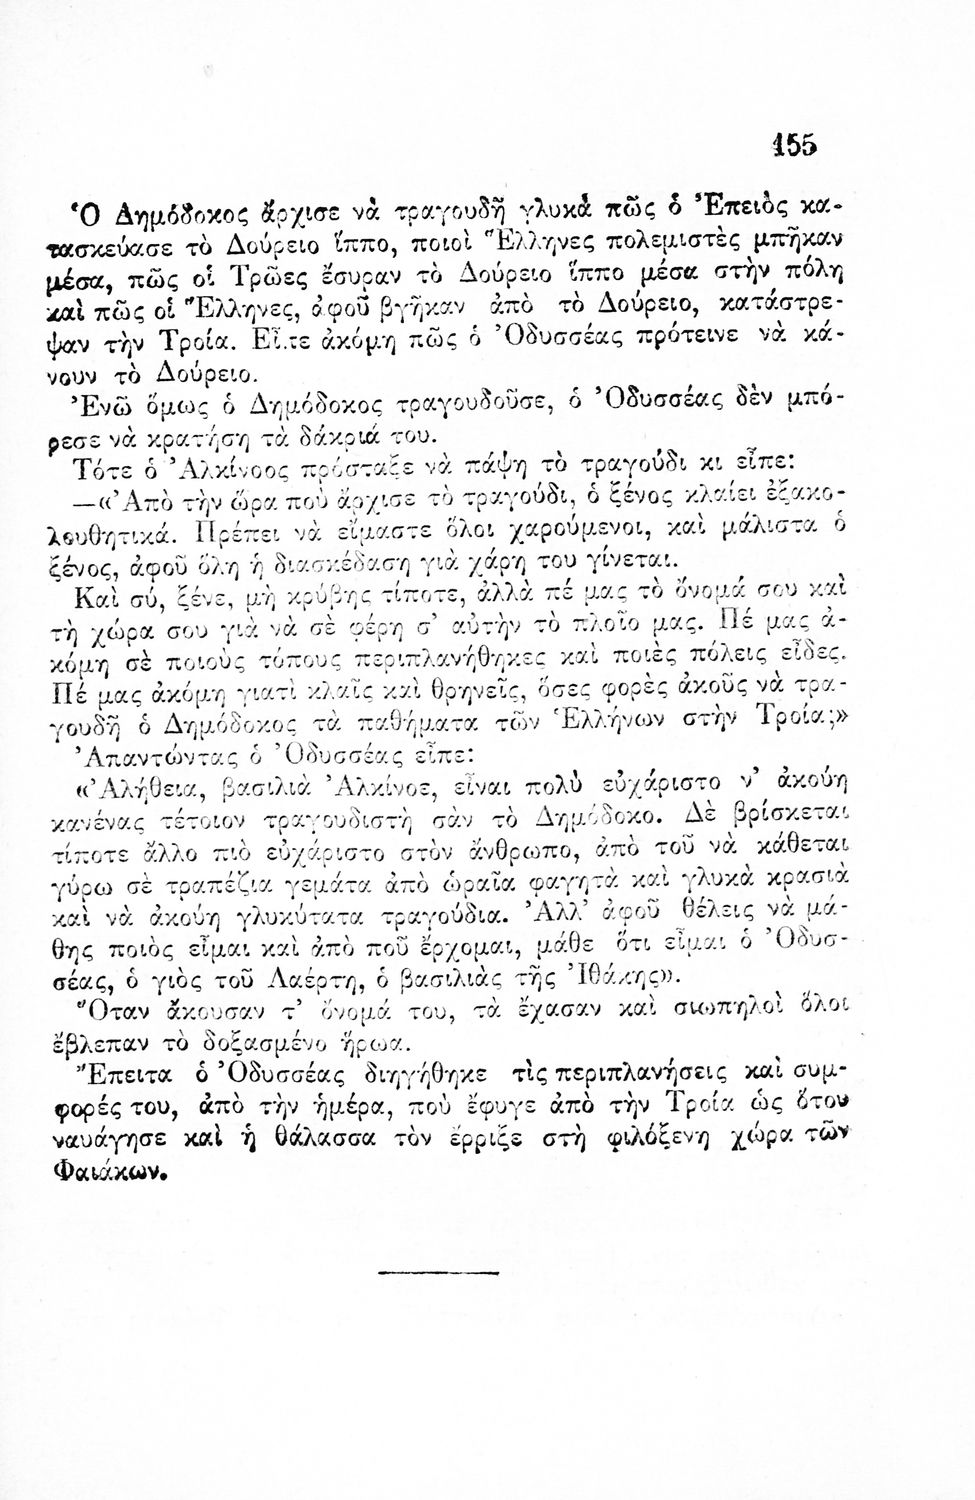 155
Ὁ Δημόδοκος ἄρχισε νὰ τραγουδῆ γλυκὰ πῶς ὁ Ἐπειὸς κα-
τασκεύασε τὸ Δούρειο ἵππο, ποιοὶ Ἕλληνες πολεμιστὲς μπῆκαν
μέσα, πῶς οἱ Τρῶες ἔσυραν τὸ Δούρειο ἵππο μέσα στὴν πόλη
καὶ πῶς οἱ Ἕλληνες, ἀφοῦ βγῆκαν ἀπὸ τὸ Δούρειο, κατάστρε-
ψαν τὴν Τροία. Εἶπε ἀκόμη πῶς ὁ Ὀδυσσέας πρότεινε νὰ κά-
νουν τὸ Δούρειο.
Ἐνῶ ὅμως ὁ Δημόδοκος τραγουδοῦσε, ὁ Ὀδυσσέας δὲν μπό-
ρεσε νὰ κρατήση τὰ δάκρια του.
Τότε ὁ Ἀλκίνοος πρόσταξε νὰ πάψη τὸ τραγούδι κι εἶπε:
—«Ἀπὸ τὴν ὥρα ποὺ ἄρχισε τὸ τραγούδι, ὁ ξένος κλαίει ἐξακο-
λουθητικά. Πρέπει νὰ εἴμαστε ὅλοι χαρούμενοι, καὶ μάλιστα ὁ
ξένος, ἀφοῦ ὅλη ἡ διασκέδαση γιὰ χάρη του γίνεται.
Καὶ σύ, ξένε, μὴ κρύβης τίποτε, ἀλλὰ πέ μας τὸ ὄνομά σου καὶ
τὴ χώρα σου γιὰ νὰ σὲ φέρη σ' αὐτὴν τὸ πλοῖο μας. Πέ μας ἀ-
κόμη σὲ ποιοὺς τόπους περιπλανήθηκες καὶ ποιὲς πόλεις εἶδες.
Πέ μας ἀκόμη γιατὶ κλαῖς καὶ θρηνεῖς, ὅσες φορὲς ἀκοῦς νὰ τρα-
γουδῆ ὁ Δημόδοκος τὰ παθήματα τῶν Ἑλλήνων στὴν Τροία;»
Ἀπαντώντας ὁ Ὀδυσσέας εἶπε:
«Ἀλήθεια, βασιλιὰ Ἀλκίνοε, εἶναι πολὺ εὐχάριστο ν' ἀκούη
κανένας τέτοιον τραγουδιστὴ σὰν τὸ Δημόδοκο. Δὲ βρίσκεται
τίποτε ἄλλο πιὸ εὐχάριστο στὸν ἄνθρωπο, ἀπὸ τοῦ νὰ κάθεται
γύρω σὲ τραπέζια γεμάτα ἀπὸ ὡραῖα φαγητὰ καὶ γλυκὰ κρασιὰ
καὶ νὰ ἀκούη γλυκύτατα τραγούδια. Ἀλλ' ἀφοῦ θέλεις νὰ μά-
θης ποιὸς εἶμαι καὶ ἀπὸ ποῦ ἔρχομαι, μάθε ὅτι εἶμαι ὁ Ὀδυσ-
σέας, ὁ γιὸς τοῦ Λαέρτη, ὁ βασιλιὰς τῆς Ἰθάκης».
Ὅταν ἄκουσαν τ' ὄνομά του, τὰ ἔχασαν καὶ σιωπηλοὶ ὅλοι
ἔβλεπαν τὸ δοξασμένο ἥρωα.
Ἔπειτα ὁ Ὀδυσσέας διηγήθηκε τὶς περιπλανήσεις καὶ συμ-
φορές του, ἀπὸ τὴν ἡμέρα, ποὺ ἔφυγε ἀπὸ τὴν Τροία ὡς ὅτου
ναυάγησε καὶ ἡ θάλασσα τὸν ἔρριξε στὴ φιλόξενη χώρα τῶν
Φαιάκων.